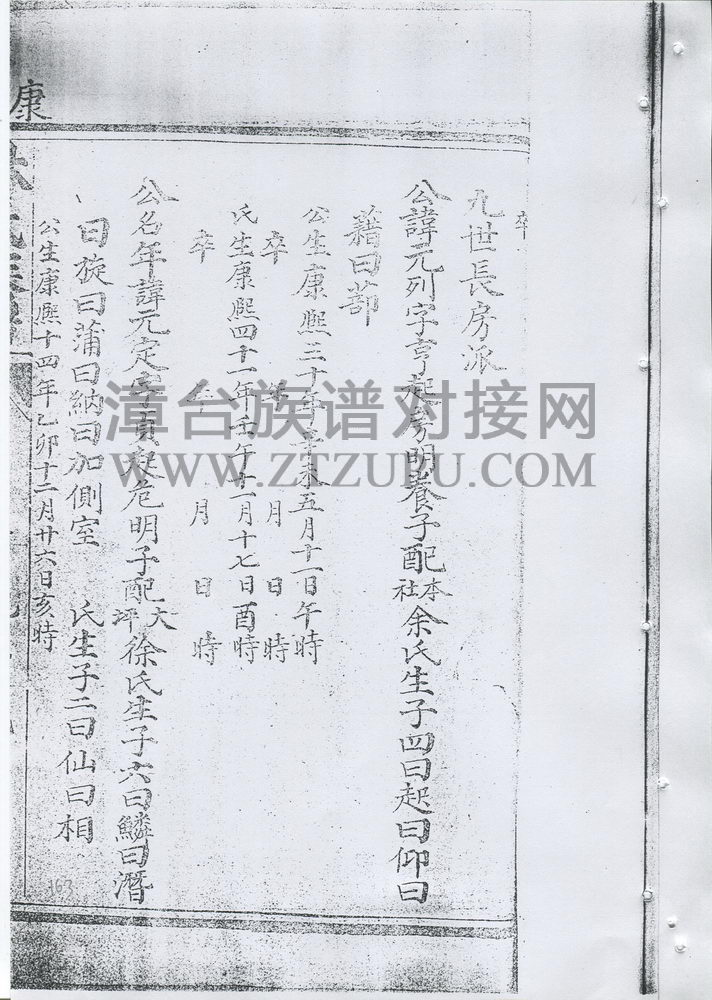 卒
九世長房派
公諱元列字亨起房明養子配本社余氏生子四曰起曰仰曰
藉曰蔀
公生康熙三十年辛未五月十一日午時
卒 年 月 日 時
氏生康熙四十一年壬午十一月十七日酉時
卒 年 月 日 時
公名年諱元定字貢起危明子配大坪徐氏生子六曰鱗曰潛
曰旋曰蒲曰納曰加側室 氏生子二曰仙曰相
公生康熙十四年乙卯十二月廿六日亥時
康
163
漳台族谱对接网
WWW.ZTZUPU.COM